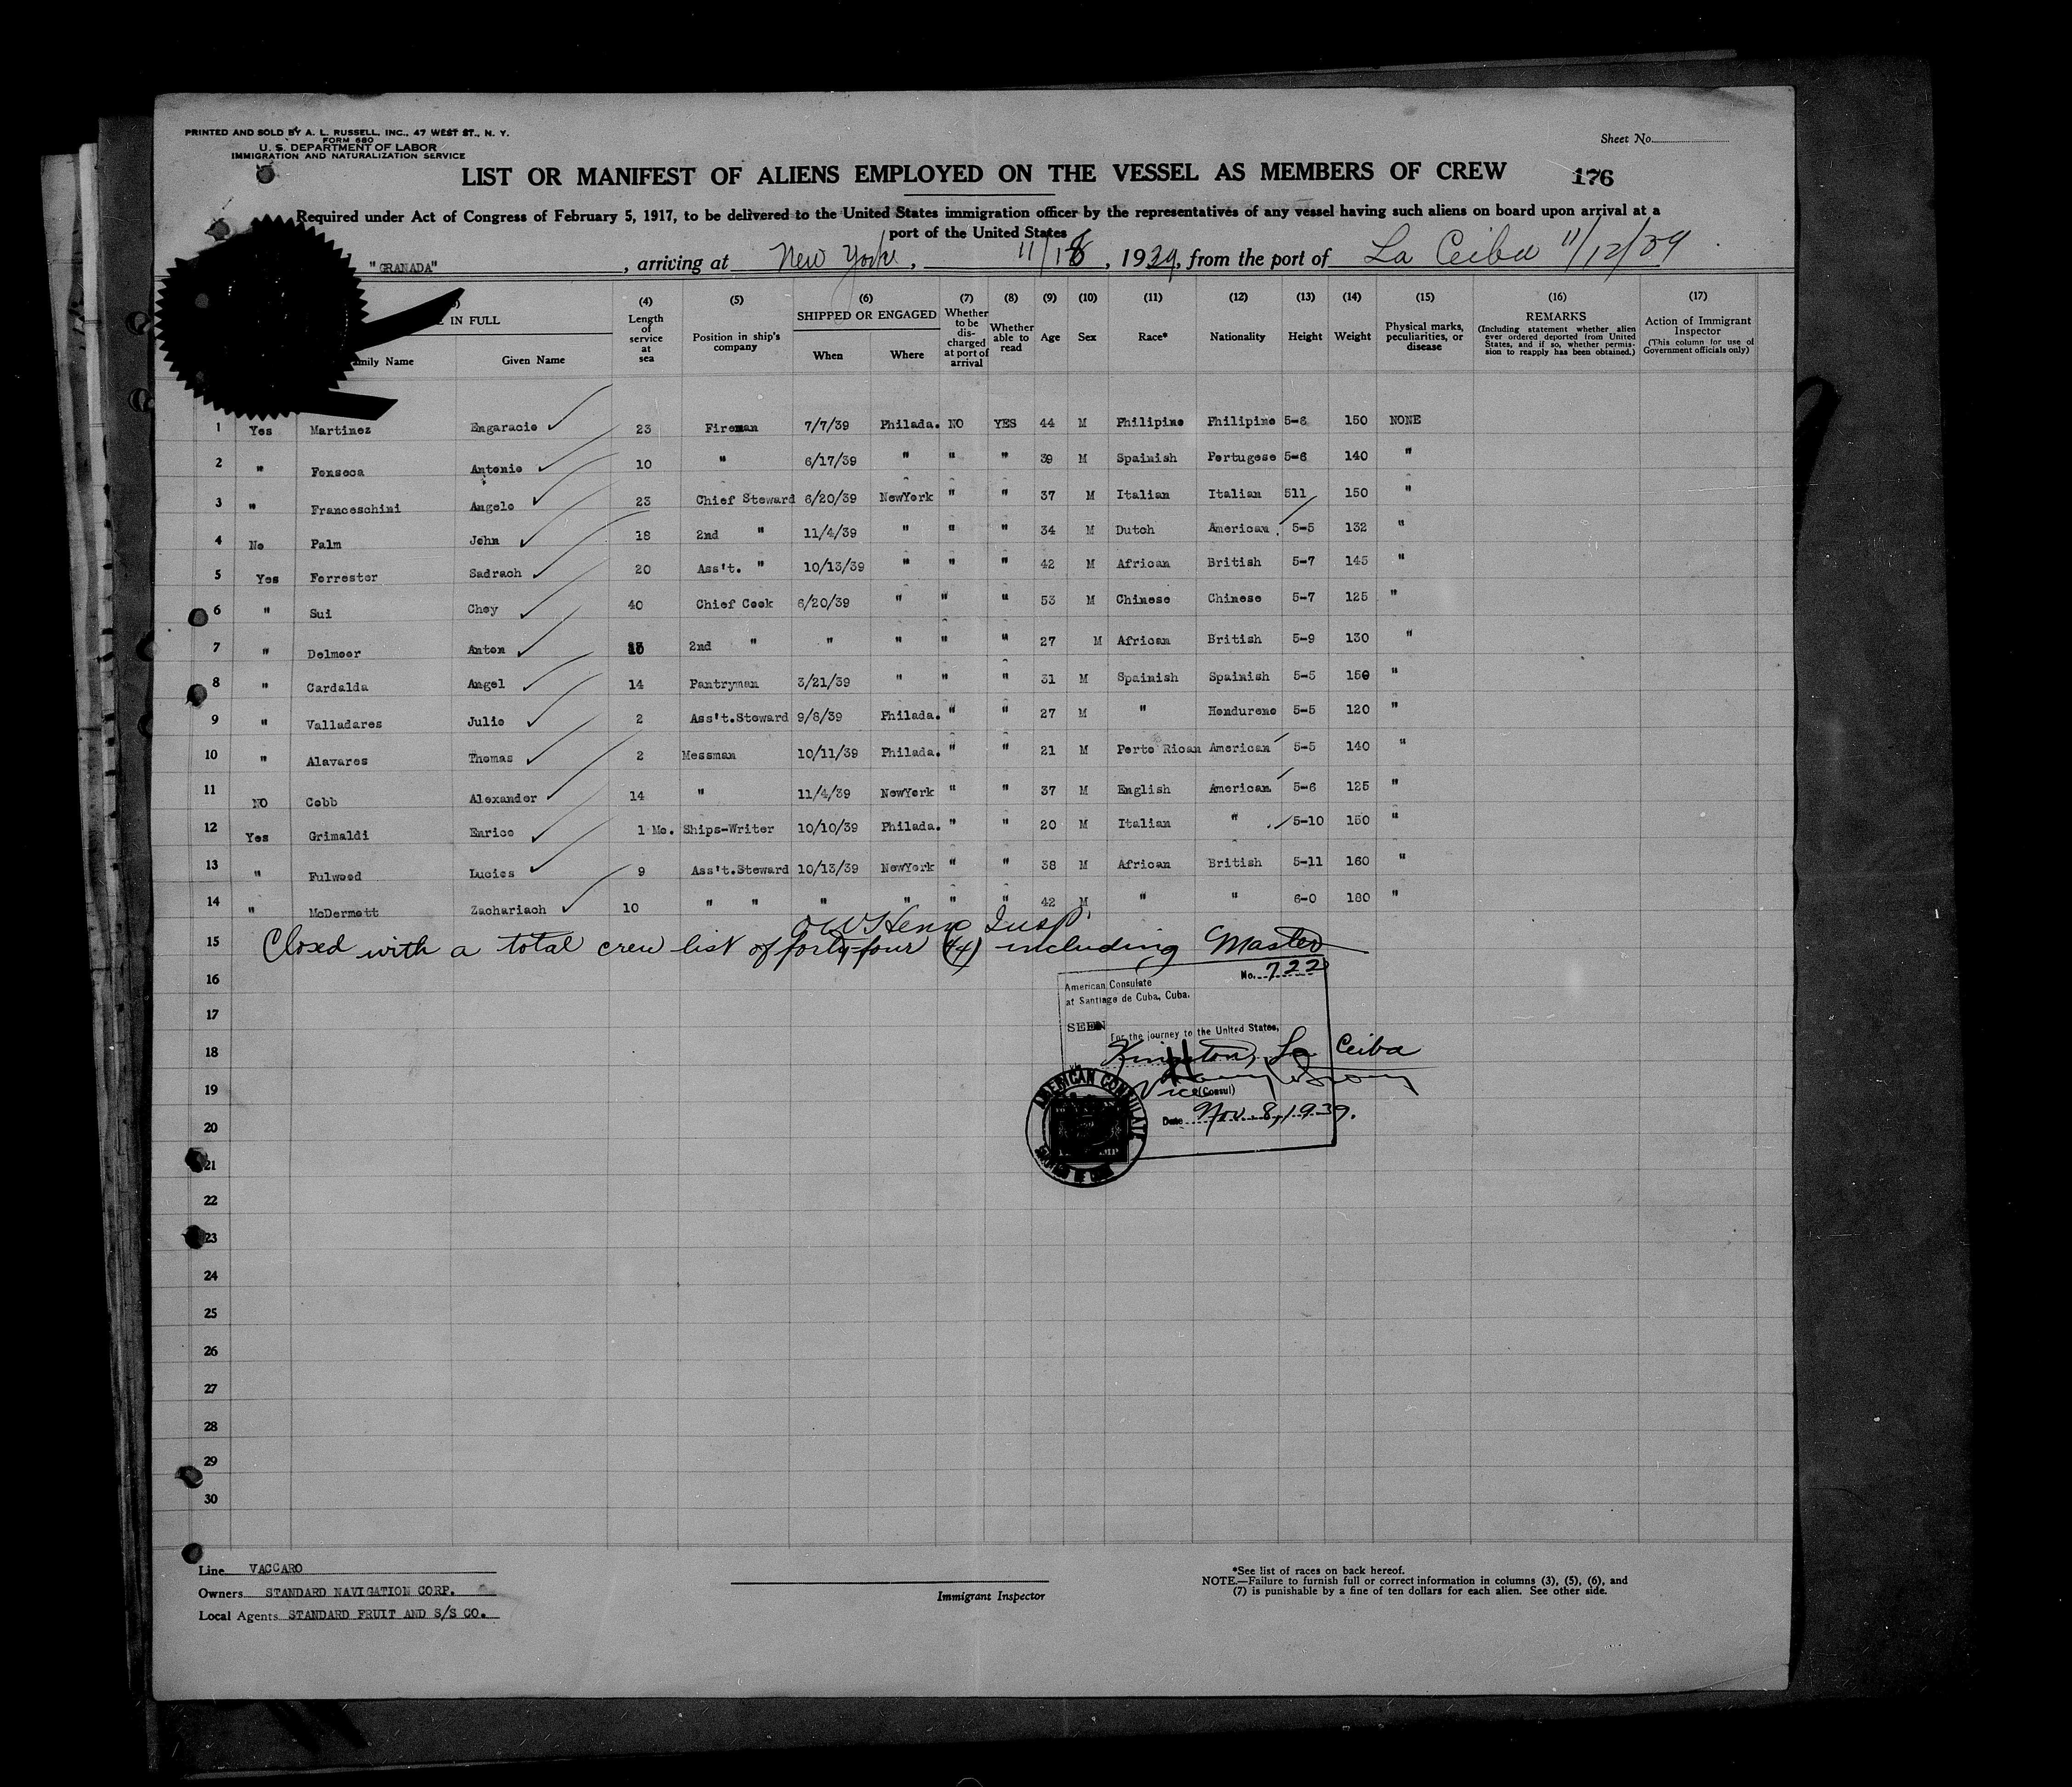 PRINTED AND SOLD BY A. L. RUSSELL, INC., 47 WEST ST., N. Y.
FORM 680
U. S. DEPARTMENT OF LABOR
IMMIGRATION AND NATURALIZATION SERVICE
Sheet No.
LIST OR MANIFEST OF ALIENS EMPLOYED ON THE VESSEL AS MEMBERS OF CREW 176
Required under Act of Congress of February 5, 1917, to be delivered to the United States immigration officer by the representatives of any vessel having such aliens on board upon arrival at a
port of the United States
"GRANADA", arriving at New York, 11/18, 1939, from the port of La Ceiba 11/12/39
(4) (5) (6) (7) (8) (9) (10) (11) (12) (13) (14) (15) (16) (17)
E IN FULL Length of service at sea Position in ship's company SHIPPED OR ENGAGED Whether to be discharged at port of arrival Whether able to read Age Sex Race* Nationality Height Weight Physical marks, peculiarities, or disease REMARKS (Including statement whether alien ever ordered deported from United States, and if so, whether permission to reapply has been obtained.) Action of Immigrant Inspector (This column for use of Government officials only)
amily Name Given Name When Where
1 Yes Martinez Engaracio 23 Fireman 7/7/39 Philada. NO YES 44 M Philipino Philipino 5-8 150 NONE
2 " Fonseca Antonio 10 " 6/17/39 " " " 39 M Spainish Portugese 5-6 140 "
3 " Franceschini Angelo 23 Chief Steward 6/20/39 NewYork " " 37 M Italian Italian 511 150 "
4 No Palm John 18 2nd " 11/4/39 " " " 34 M Dutch American 5-5 132 "
5 Yes Forrester Sadrach 20 Ass't. " 10/13/39 " " " 42 M African British 5-7 145 "
6 " Sui Choy 40 Chief Cook 6/20/39 " " " 53 M Chinese Chinese 5-7 125 "
7 " Delmoor Anton 2nd " " " " " 27 M African British 5-9 130 "
8 " Cardalda Angel 14 Pantryman 3/21/39 " " " 31 M Spainish Spainish 5-5 150 "
9 " Valladares Julio 2 Ass't.Steward 9/8/39 Philada. " " 27 M " Hondureno 5-5 120 "
10 " Alavares Thomas 2 Messman 10/11/39 Philada. " " 21 M Porto Rican American 5-5 140 "
11 NO Cobb Alexander 14 " 11/4/39 NewYork " " 37 M English American 5-6 125 "
12 Yes Grimaldi Enrico 1 Mo. Ships-Writer 10/10/39 Philada. " " 20 M Italian " 5-10 150 "
13 " Fulwood Lucios 9 Ass't.Steward 10/13/39 NewYork " " 38 M African British 5-11 160 "
14 " McDermott Zachariach 10 " " " " " " 42 M " " 6-0 180 "
Insp.
15 Closed with a total crew list of forty-four (44) including Master
16
17
18
19
20
21
22
23
24
25
26
27
28
29
30
No. 722
American Consulate
at Santiago de Cuba, Cuba.
SEEN
For the journey to the United States,
Kingston, La Ceiba
Vice (Consul)
Date Nov. 8, 1939.
AMERICAN CONSULATE
Line VACCARO
Owners STANDARD NAVIGATION CORP.
Local Agents STANDARD FRUIT AND S/S CO.
Immigrant Inspector
*See list of races on back hereof.
NOTE.—Failure to furnish full or correct information in columns (3), (5), (6), and
(7) is punishable by a fine of ten dollars for each alien. See other side.